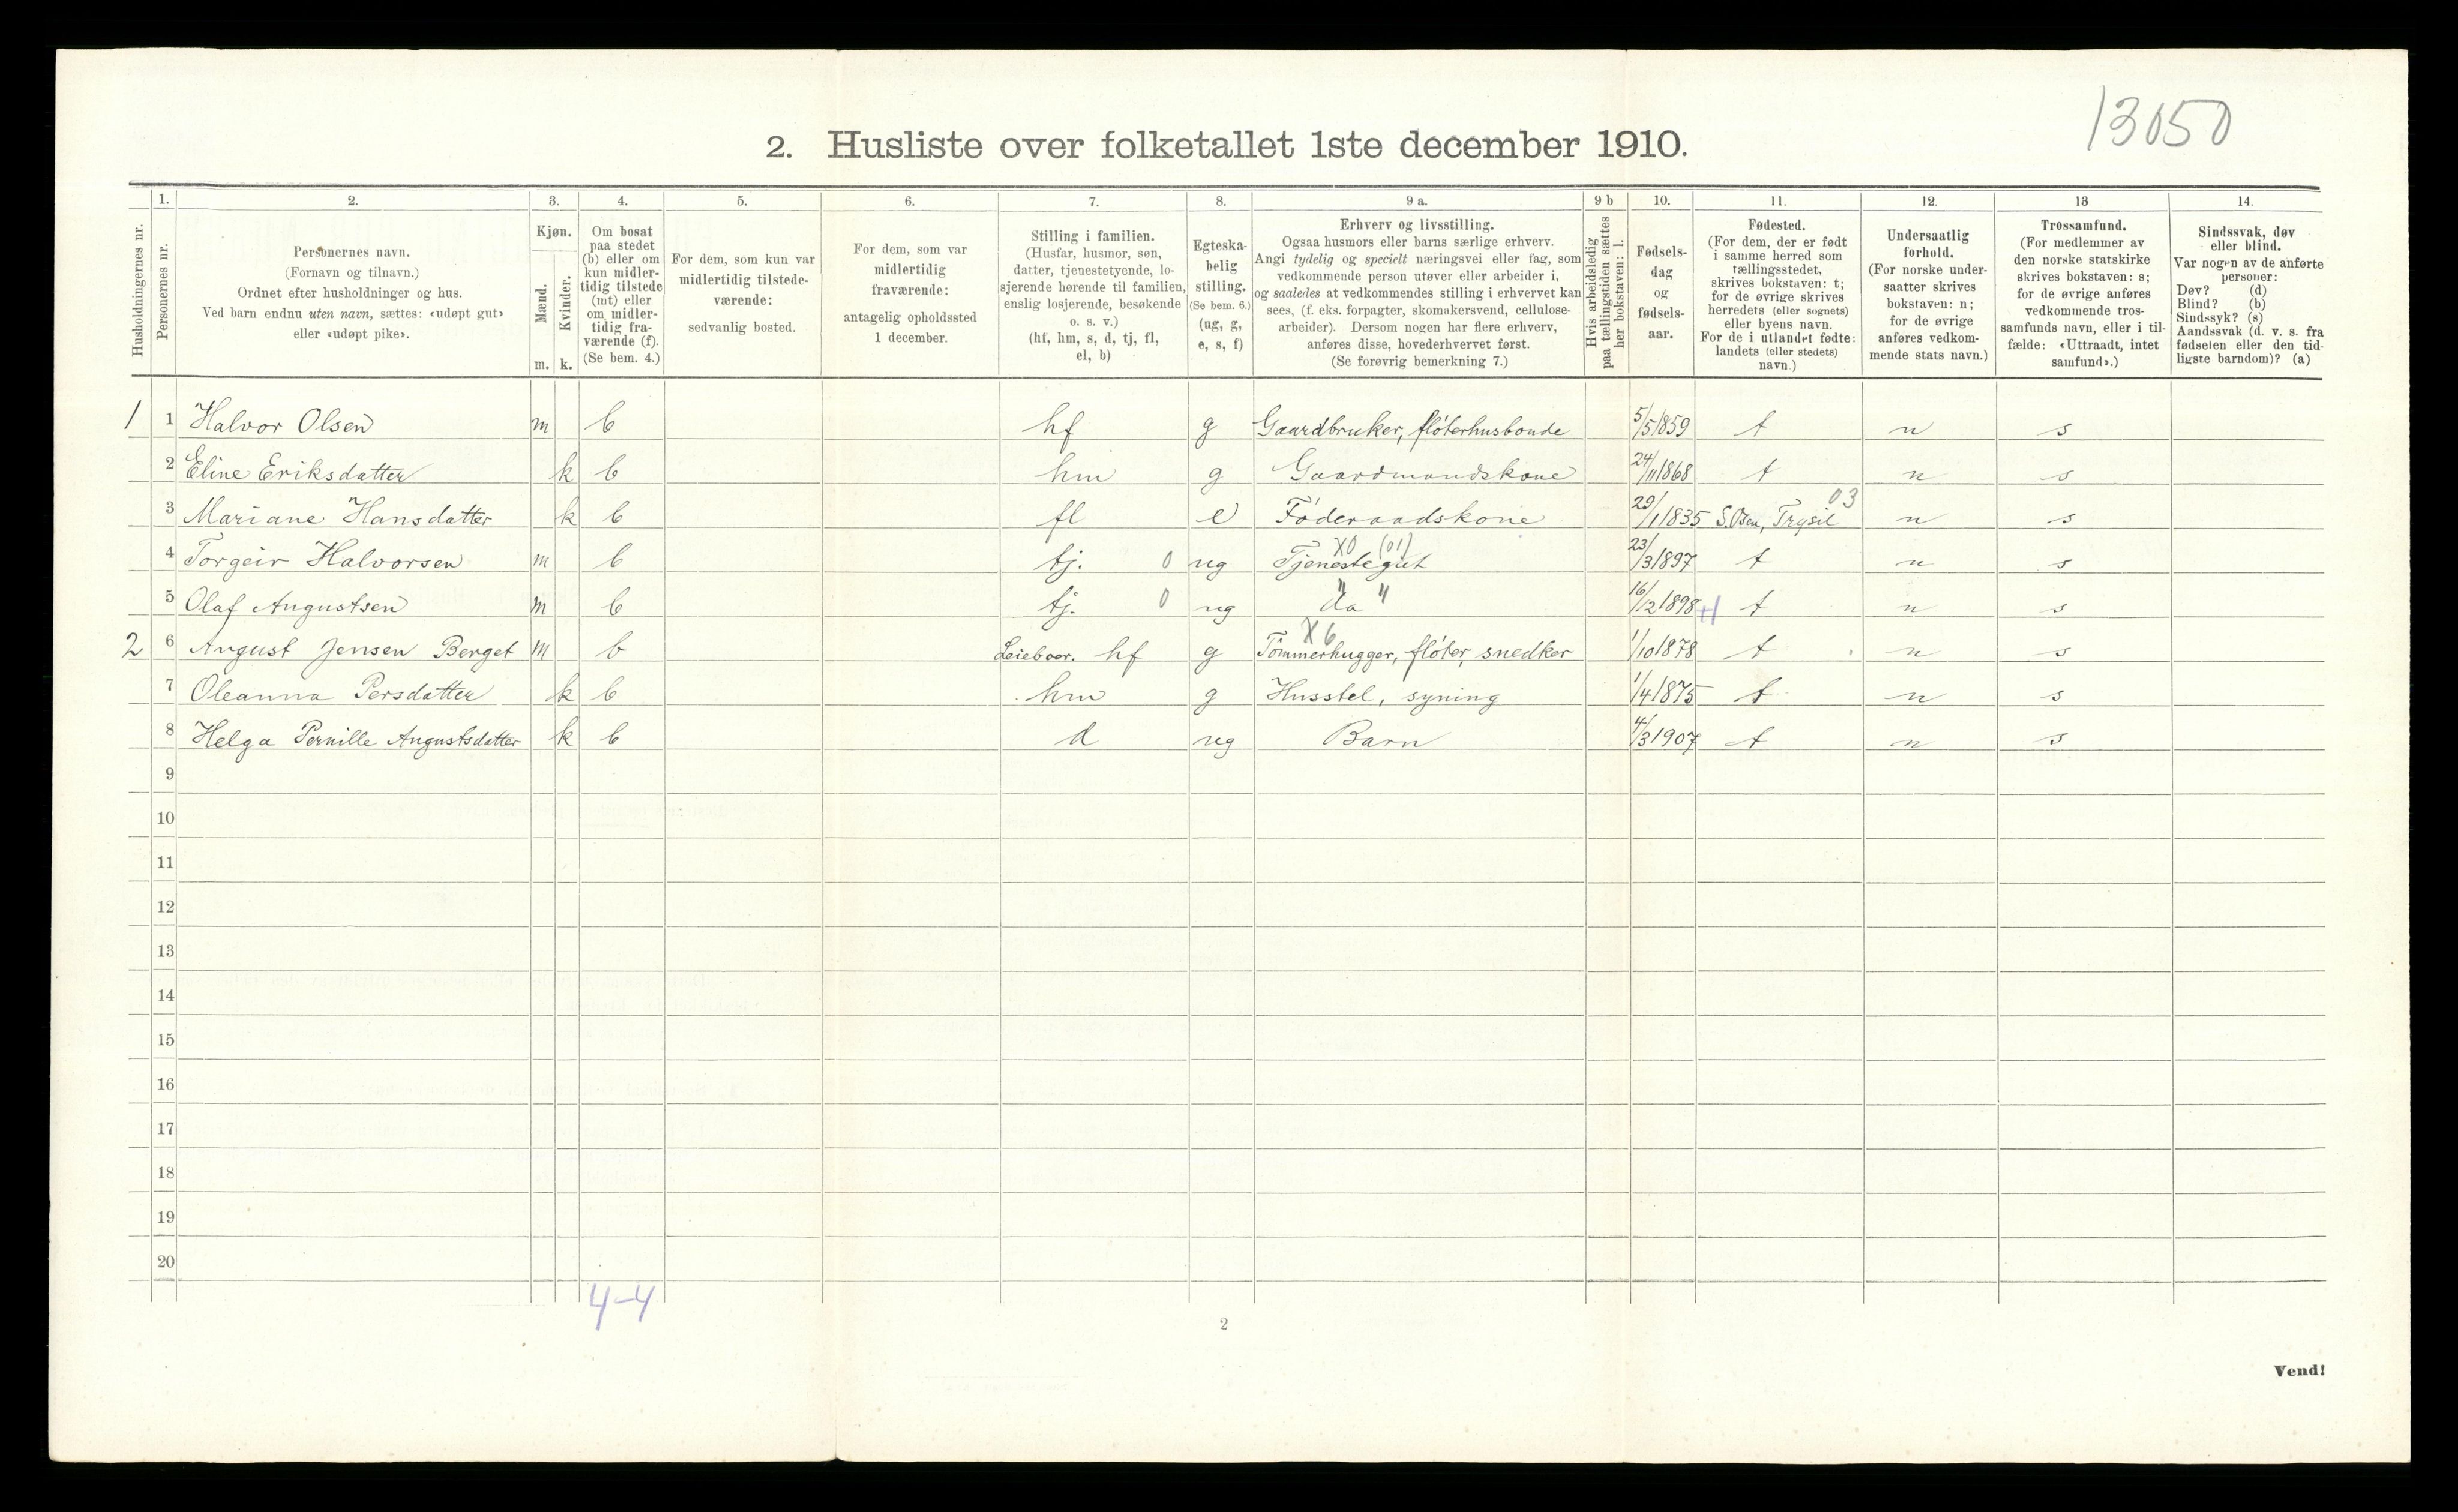 13050
2. Husliste over folketallet 1ste december 1910.
Husholdningernes nr.
1.
Personernes nr.
2.
Personernes navn.
(Fornavn og tilnavn.)
Ordnet efter husholdninger og hus.
Ved barn endnu uten navn, sættes: «udøpt gut»
eller «udøpt pike».
3.
Kjøn.
Mænd.
m.
Kvinder.
k.
4.
Om bosat
paa stedet
(b) eller om
kun midler-
tidig tilstede
(mt) eller
om midler-
tidig fra-
værende (f).
(Se bem. 4.)
5.
For dem, som kun var
midlertidig tilstede-
værende:
sedvanlig bosted.
6.
For dem, som var
midlertidig
fraværende:
antagelig opholdssted
1 december.
7.
Stilling i familien.
(Husfar, husmor, søn,
datter, tjenestetyende, lo-
sjerende hørende til familien,
enslig losjerende, besøkende
o. s. v.)
(hf, hm, s, d, tj, fl,
el, b)
8.
Egteska-
belig
stilling.
(Se bem. 6.)
(ug, g,
e, s, f)
9 a.
Erhverv og livsstilling.
Ogsaa husmors eller barns særlige erhverv.
Angi tydelig og specielt næringsvei eller fag, som
vedkommende person utøver eller arbeider i,
og saaledes at vedkommendes stilling i erhvervet kan
sees, (f. eks. forpagter, skomakersvend, cellulose-
arbeider). Dersom nogen har flere erhverv,
anføres disse, hovederhvervet først.
(Se forøvrig bemerkning 7.)
9 b
Hvis arbeidsledig
paa tællingstiden sættes
her bokstaven: l.
10.
Fødsels-
dag
og
fødsels-
aar.
11.
Fødested.
(For dem, der er født
i samme herred som
tællingsstedet,
skrives bokstaven: t;
for de øvrige skrives
herredets (eller sognets)
eller byens navn.
For de i utlandet fødte:
landets (eller stedets)
navn.)
12.
Undersaatlig
forhold.
(For norske under-
saatter skrives
bokstaven: n;
for de øvrige
anføres vedkom-
mende stats navn.)
13
Trossamfund.
(For medlemmer av
den norske statskirke
skrives bokstaven: s;
for de øvrige anføres
vedkommende tros-
samfunds navn, eller i til-
fælde: «Uttraadt, intet
samfund».)
14.
Sindssvak, døv
eller blind.
Var nogen av de anførte
personer:
Døv? (d)
Blind? (b)
Sindssyk? (s)
Aandssvak (d. v. s. fra
fødselen eller den tid-
ligste barndom)? (a)
1 1 Halvor Olsen m b hf g Gaardbruker, fløterhusbonde 5/5 1859 t n s
2 Eline Eriksdatter k b hm g Gaardmandskone 24/11 1868 t n s
03
3 Mariane Hansdatter k b fl e Føderaadskone 29/1 1835 S.Osen, Trysil n s
X0 (01)
4 Torgeir Halvorsen m b tj. 0 ug Tjenestegut 23/3 1897 t n s
" "
5 Olaf Augustsen m b tj. 0 ug da 16/2 1898 t n s
X6
2 6 August Jensen Berget m b Leieboer. hf g Tømmerhugger, fløter, snedker 1/10 1878 t n s
7 Oleanna Persdatter k b hm g Husstel, syning 1/4 1875 t n s
8 Helga Pernille Augustsdatter k b d ug Barn 4/3 1907 t n s
9
10
11
12
13
14
15
16
17
18
19
20
4-4
2
Vend!